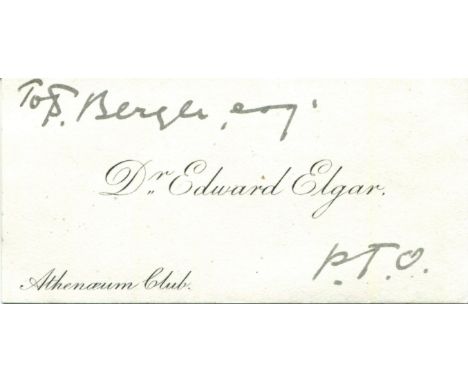 To F. Bergler, esq.
Dr. Edward Elgar.
P.T.O.
Athenæum Club.